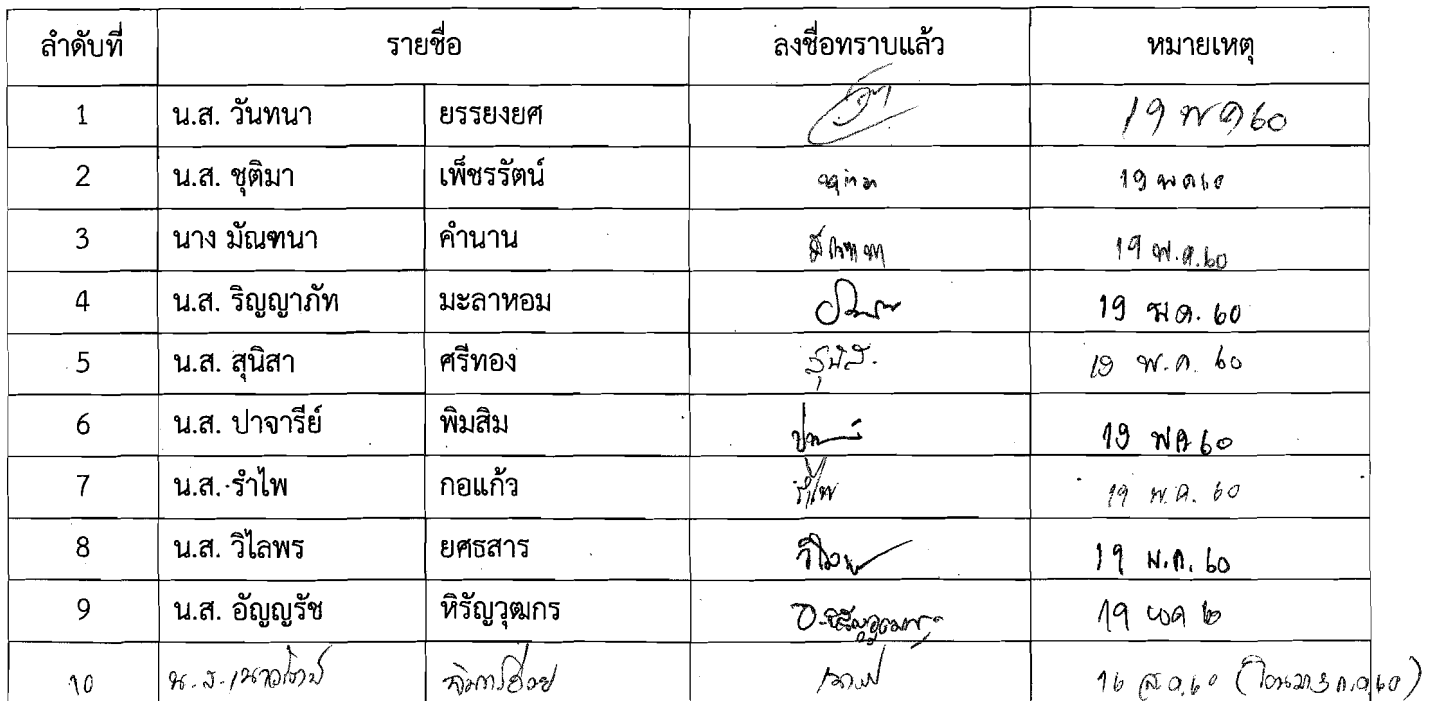 ลำดับที่ รายชื่อ ลงชื่อทราบแล้ว หมายเหตุ
1 น.ส. วันทนา ยรรยงยศ 19 พค 60
2 น.ส. ชุติมา เพ็ชรรัตน์ ชุติมา 19 พค 60
3 นาง มัณฑนา คำนาน มัณฑนา 19 พ.ค. 60
4 น.ส. ริญญาภัท มะลาหอม 19 พ.ค. 60
5 น.ส. สุนิสา ศรีทอง สุนิส. 19 พ.ค. 60
6 น.ส. ปาจารีย์ พิมสิม 19 พค 60
7 น.ส. รำไพ กอแก้ว รำไพ 19 พ.ค. 60
8 น.ส. วิไลพร ยศธสาร 19 พ.ค. 60
9 น.ส. อัญญรัช หิรัญวุฒกร 19 พค
10 น.ส. 16 ส.ค. 60